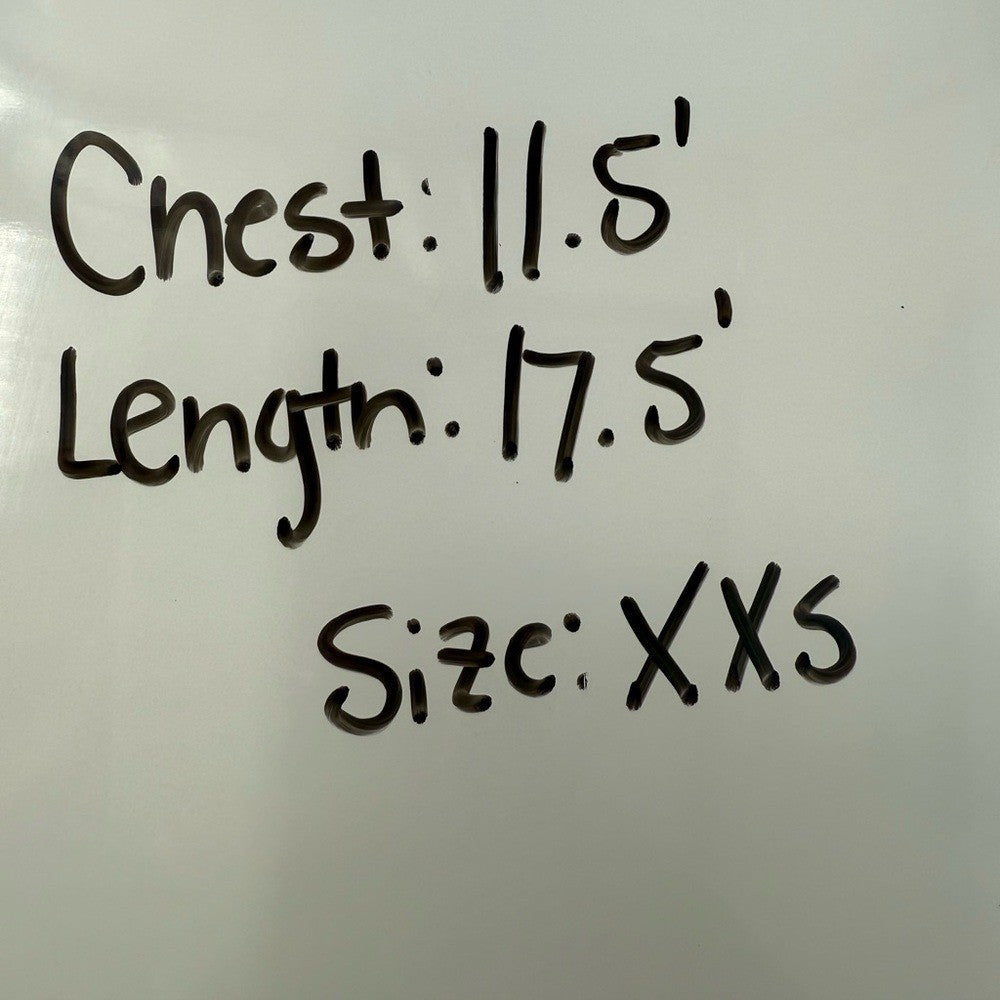 Chest: 11.5'
Length: 17.5'
Size: XXS